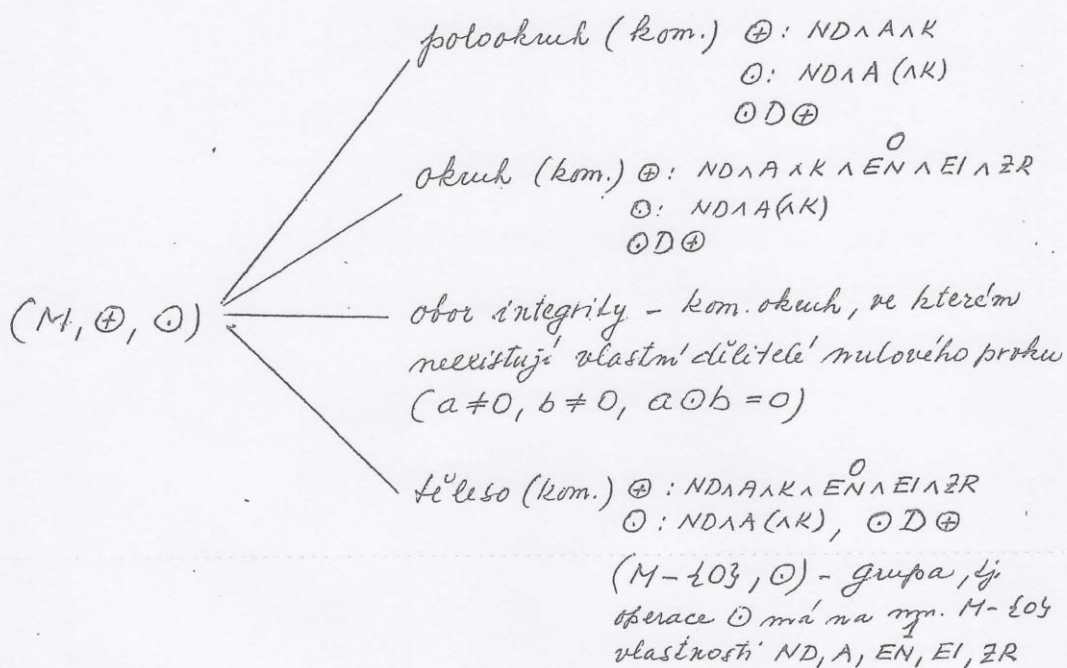 polookruh (kom.) ⊕: ND∧A∧K
⊙: ND∧A(∧K)
⊙D⊕
0
okruh (kom.) ⊕: ND∧A∧K∧EN∧EI∧ZR
⊙: ND∧A(∧K)
⊙D⊕
(M, ⊕, ⊙)
obor integrity – kom. okruh, ve kterém
neexistují vlastní dělitelé nulového prvku
(a≠0, b≠0, a⊙b=0)
0
těleso (kom.) ⊕: ND∧A∧K∧EN∧EI∧ZR
⊙: ND∧A(∧K), ⊙D⊕
(M-{0}, ⊙) - grupa, tj.
operace ⊙ má na mn. M-{0}
1
vlastnosti ND, A, EN, EI, ZR